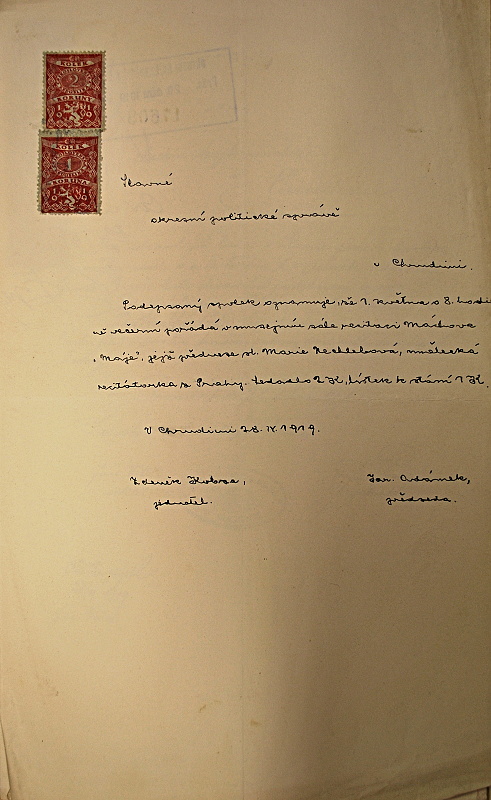 KOLEK
2
KORUNY
1919
KOLEK
1
KORUNA
1919
Slavné
okresní politické správě
v Chrudimi.
Podepsaný spolek oznamuje, že 1. května o 8. hodi
né večerní pořádá v musejním sále recitaci Máchova
„Máje“, jejž přednese sl. Marie Nechlebová, umělecká
recitátorka z Prahy. Sedadlo 2 K, lístek k stání 1 K.
V Chrudimi 28. IV. 1919.
Zdeněk Kobza,
jednatel.
Jar. Adámek,
předseda.